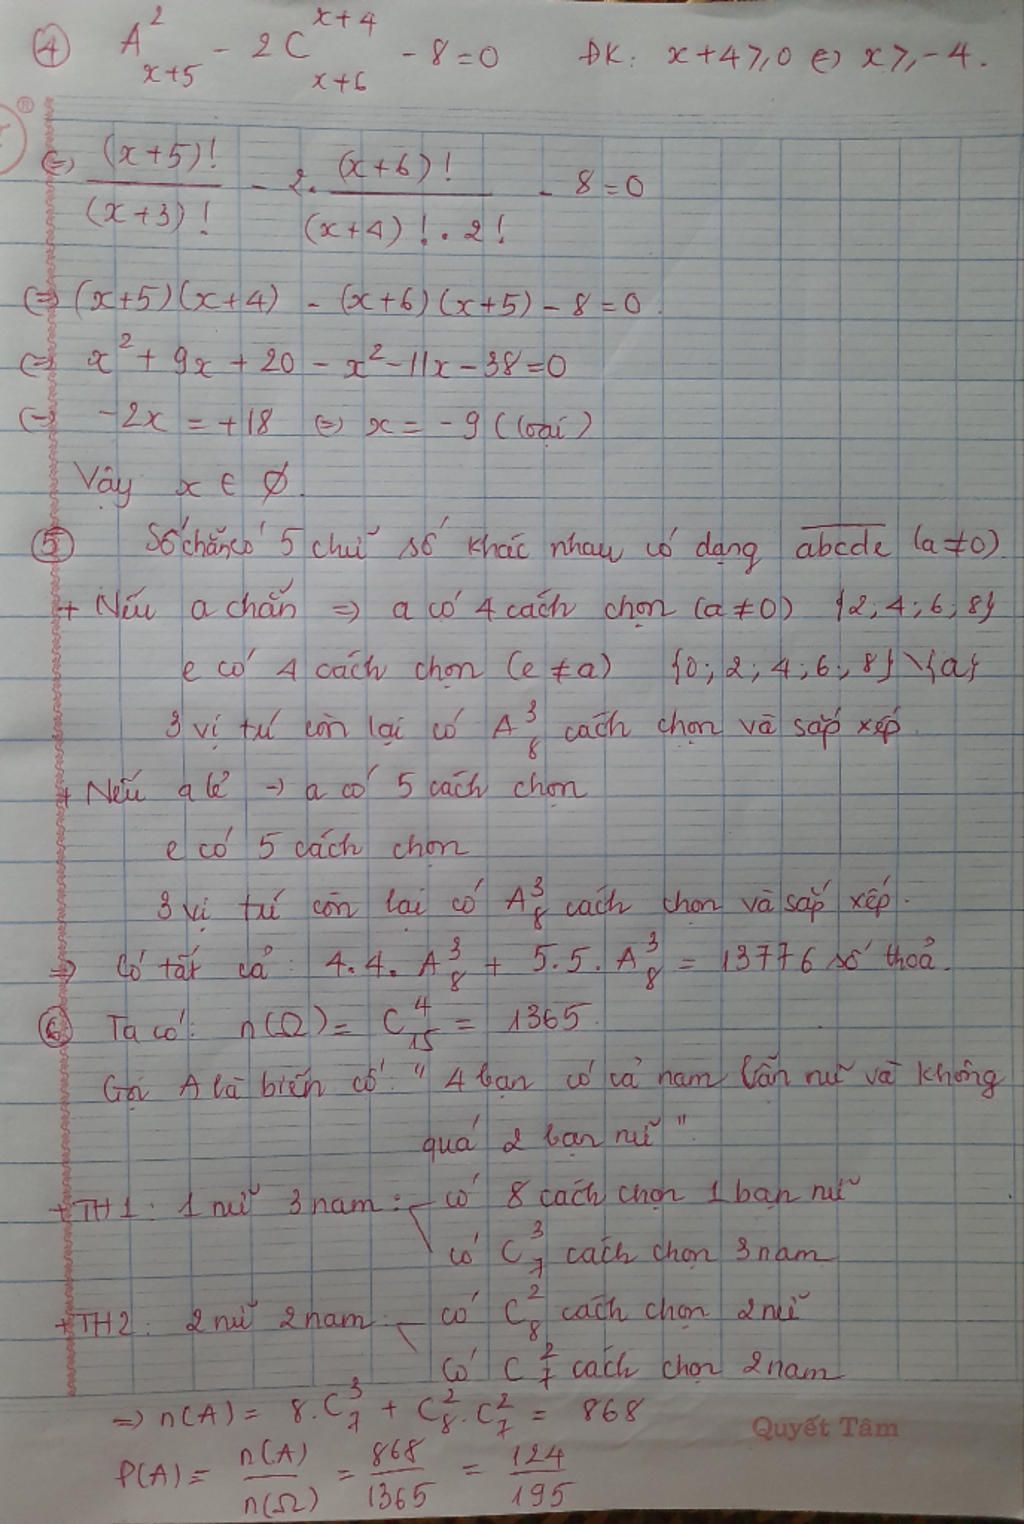 ④ A²ₓ₊₅ - 2Cˣ⁺⁴ₓ₊₆ - 8 = 0 ĐK: x+4 ≥ 0 ⇔ x ≥ -4.
⇔ (x+5)!/(x+3)! - 2. (x+6)!/((x+4)!.2!) - 8 = 0
⇔ (x+5)(x+4) - (x+6)(x+5) - 8 = 0.
⇔ x² + 9x + 20 - x² - 11x - 38 = 0
⇔ -2x = +18 ⇔ x = -9 (loại)
Vậy x ∈ ∅.
⑤ Số chẵn có 5 chữ số khác nhau có dạng abcde (a ≠ 0)
+ Nếu a chẵn ⇒ a có 4 cách chọn (a ≠ 0) {2; 4; 6; 8}
e có 4 cách chọn (e ≠ a) {0; 2; 4; 6; 8} \ {a}
3 vị trí còn lại có A³₈ cách chọn và sắp xếp
+ Nếu a lẻ → a có 5 cách chọn
e có 5 cách chọn
3 vị trí còn lại có A³₈ cách chọn và sắp xếp.
⇒ Có tất cả: 4.4. A³₈ + 5.5. A³₈ = 13776 số thoả.
⑥ Ta có: n(Ω) = C⁴₁₅ = 1365.
Gọi A là biến cố: " 4 bạn có cả nam lẫn nữ và không
quá 2 bạn nữ ".
+ TH1: 1 nữ 3 nam: có 8 cách chọn 1 bạn nữ
có C³₇ cách chọn 3 nam
+ TH2: 2 nữ 2 nam: có C²₈ cách chọn 2 nữ
có C²₇ cách chọn 2 nam
⇒ n(A) = 8.C³₇ + C²₈.C²₇ = 868
Quyết Tâm
P(A) = n(A)/n(Ω) = 868/1365 = 124/195